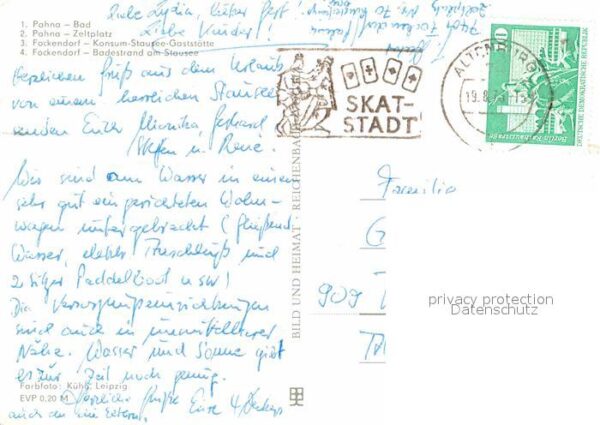 1. Pahna – Bad
2. Pahna – Zeltplatz
3. Fockendorf – Konsum-Stausee-Gaststätte
4. Fockendorf – Badestrand am Stausee
Liebe Lydia, lieber Gert!
Liebe Kinder!
Herzlichen Gruß aus dem Urlaub
von einem herrlichen Stausee
senden Euch Monika, Gerhard
Steffen u. Rene.
Wir sind am Wasser in einem
sehr gut eingerichteten Wohn-
wagen untergebracht (fließend
Wasser, elektr. Anschluß und
2 sitzer Paddelboot usw!
Die Versorgungseinrichtungen
sind auch in unmittelbarer
Nähe. Wasser und Sonne gibt
es zur Zeit noch genug.
Herzliche Grüße Eure 4
auch an die Eltern.
Farbfoto: Kühn, Leipzig
EVP 0,20 M
BILD UND HEIMAT · REICHENBACH
SKAT-
STADT
ALTENBURG
19.8.
10
DEUTSCHE DEMOKRATISCHE REPUBLIK
Familie
G
909
privacy protection
Datenschutz